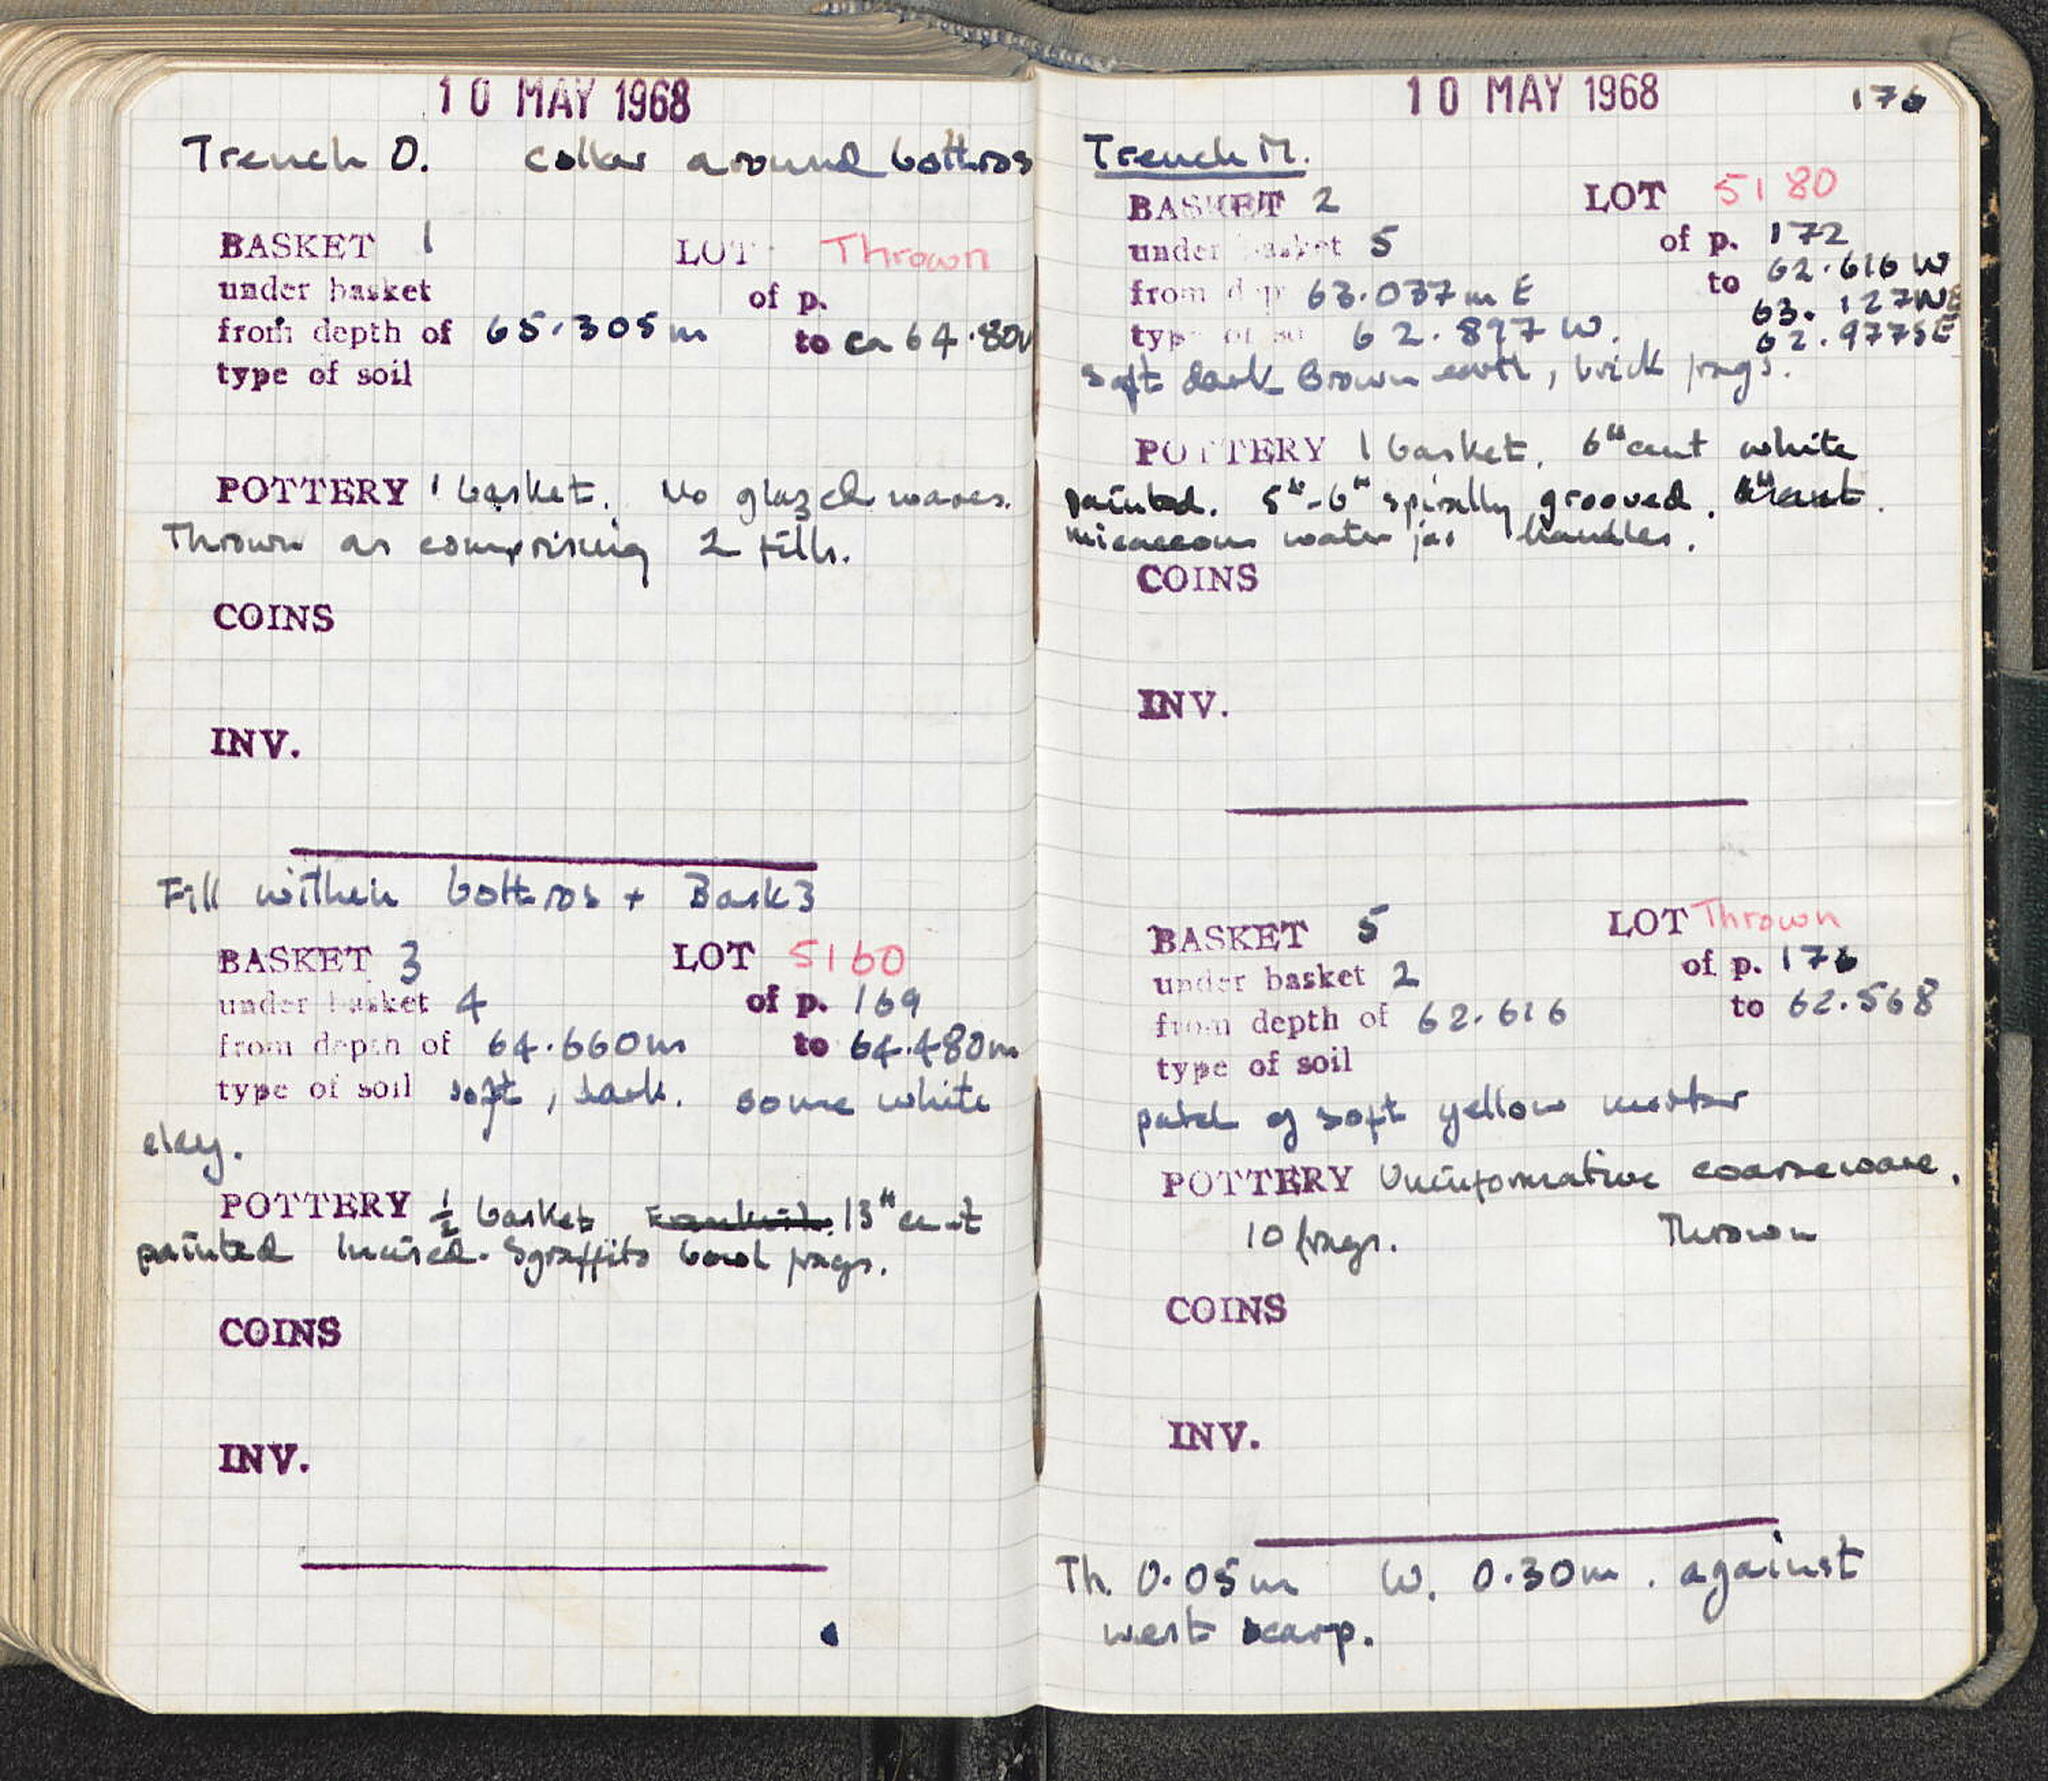 10 MAY 1968
Trench O. collar around bothros
BASKET 1 LOT Thrown
under basket of p.
from depth of 65.305m to ca 64.80m
type of soil
POTTERY 1 basket. No glazed wares.
Thrown as comprising 2 fills.
COINS
INV.
Fill within bothros + Bask 3
BASKET 3 LOT 5160
under basket 4 of p. 169
from depth of 64.660m to 64.480m
type of soil soft, dark. some white
clay.
POTTERY ½ basket 13th cent
painted Incised-Sgraffito bowl frags.
COINS
INV.
10 MAY 1968 176
Trench M.
BASKET 2 LOT 5180
under basket 5 of p. 172
from dep 63.037m E to 62.616 W
63.127NE
type of so 62.897 W. 62.977SE
soft dark Brown earth, brick frags.
POTTERY 1 basket. 6th cent white
painted. 5th-6th spirally grooved.
micaceous water jar handles.
COINS
INV.
BASKET 5 LOT Thrown
under basket 2 of p. 176
from depth of 62.616 to 62.568
type of soil
patch of soft yellow mortar
POTTERY Uninformative coarseware.
10 frags. Thrown
COINS
INV.
Th. 0.05m W. 0.30m. against
west scarp.